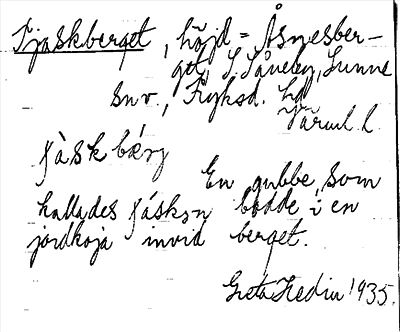 Tjaskberget, höjd = Åsnesber-
get, S. Såneby, Sunne
snv., Fryksd. hd
Värml. l.
En gubbe, som
kallades bodde i en
jordkoja invid berget.
Greta Hedin 1935.